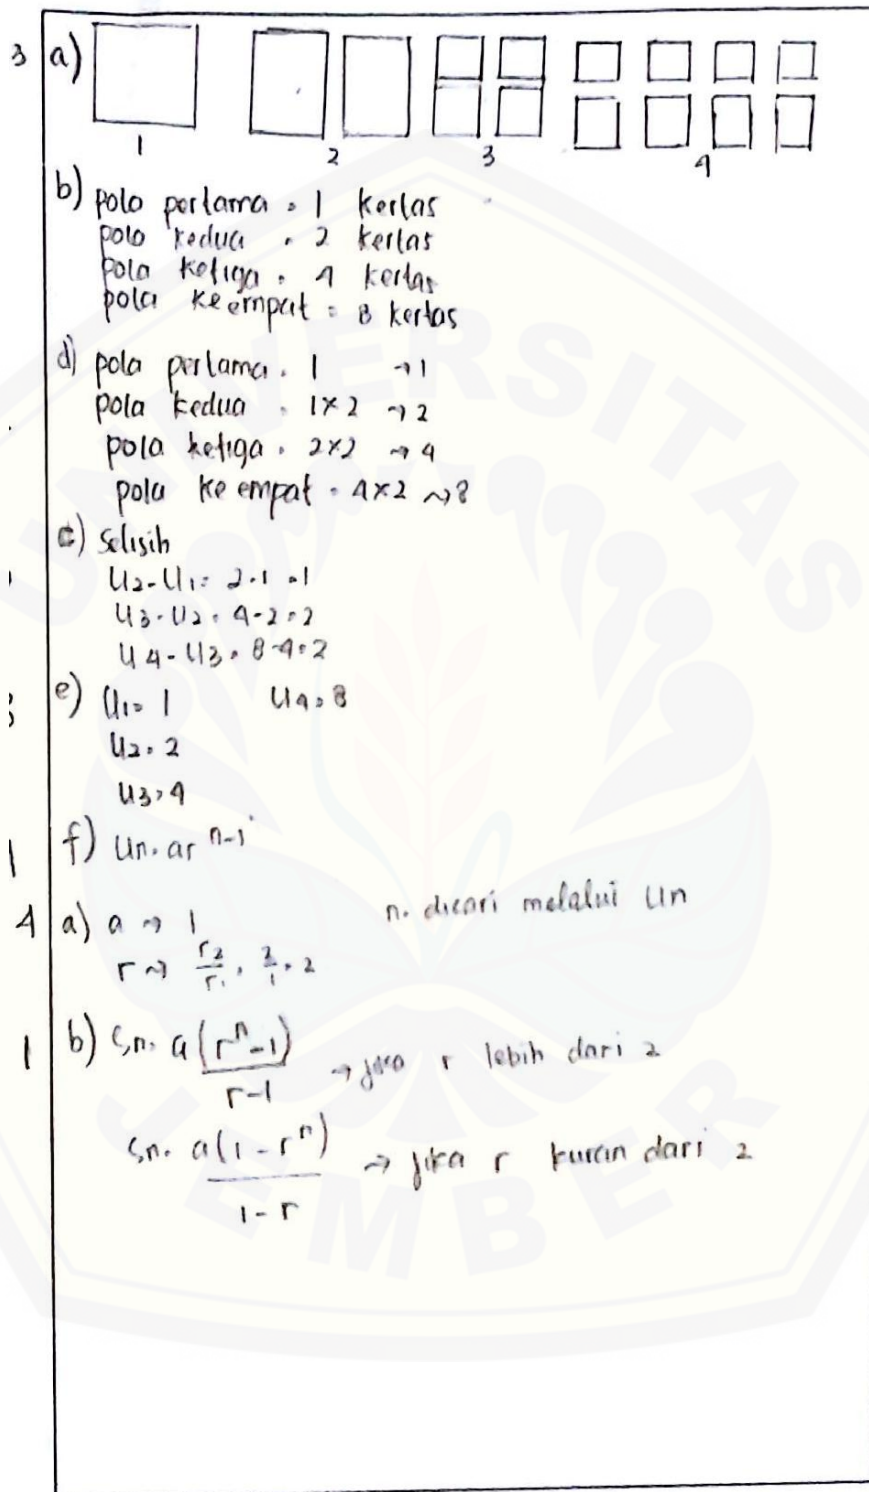 3 a)
1 2 3 4
b) pola pertama = 1 kertas
pola kedua = 2 kertas
pola ketiga = 4 kertas
pola keempat = 8 kertas
d) pola pertama = 1 → 1
pola kedua = 1×2 → 2
pola ketiga = 2×2 → 4
pola ke empat = 4×2 → 8
c) Selisih
U2-U1 = 2-1 = 1
U3-U2 = 4-2 = 2
U4-U3 = 8-4 = 2
e) U1 = 1 U4 = 8
U2 = 2
U3 = 4
1 f) Un = ar^n-1
4 a) a → 1 n = dicari melalui Un
r → r2/r1 = 2/1 = 2
1 b) Sn = a(r^n-1)/r-1 → jika r lebih dari 2
Sn = a(1-r^n)/1-r → jika r kuran dari 2
UNIVERSITAS
JEMBER